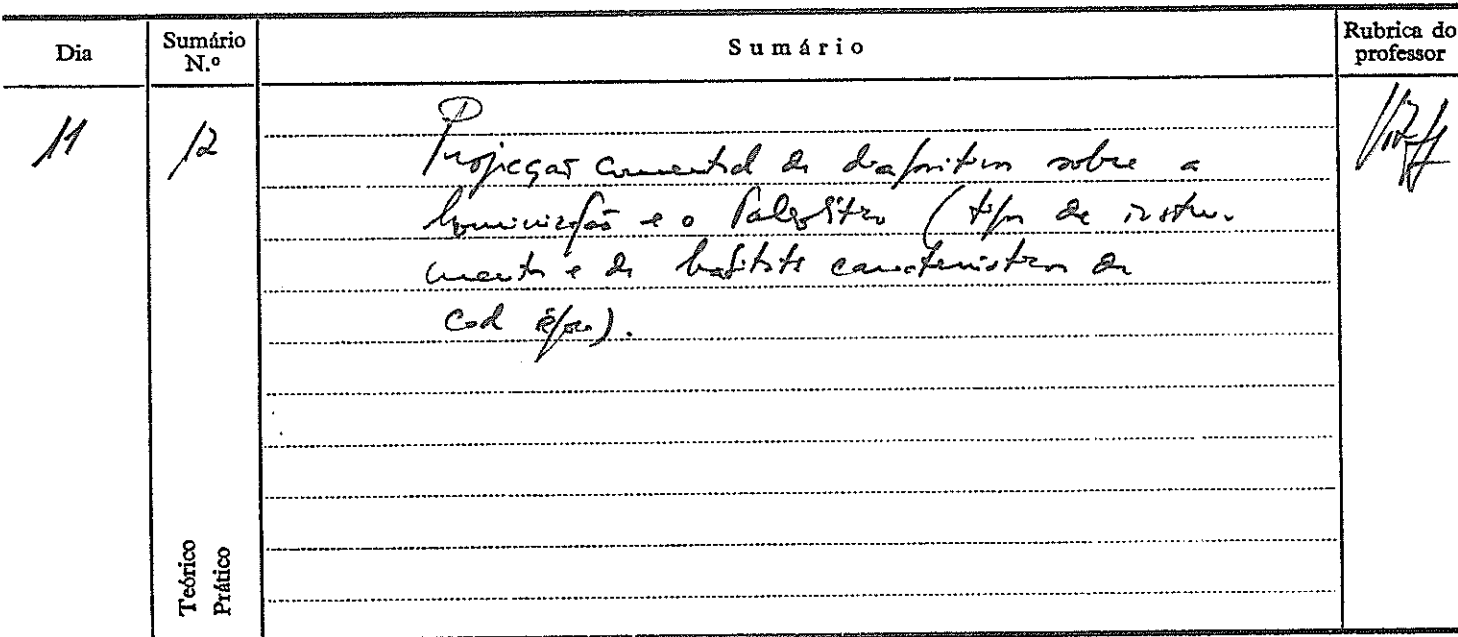 Dia
Sumário N.º
Sumário
Rubrica do professor
11
12
Projecção comentada de diapositivos sobre a
hominização e o Paleolítico (tipos de instru-
mentos e de habitats característicos de
cada época).
Teórico
Prático